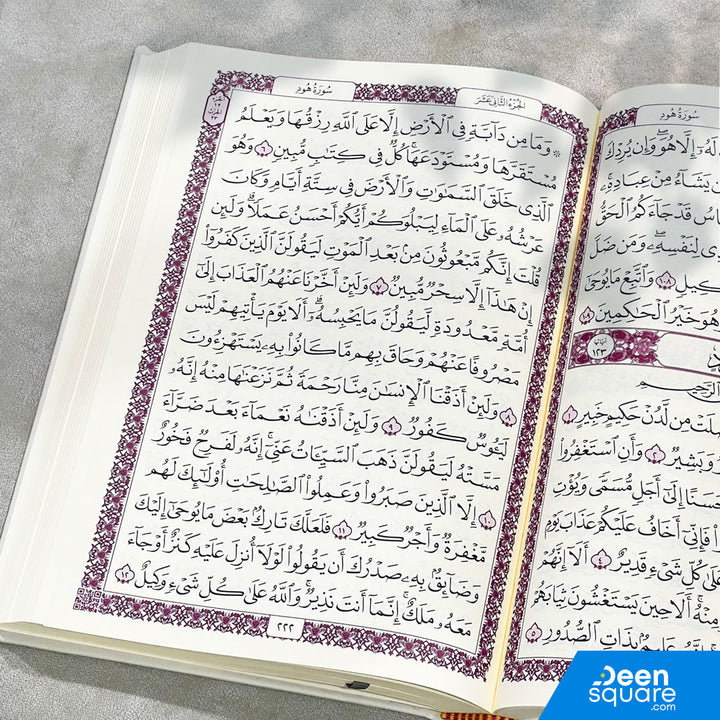 سُورَةُ هُودٍ
الجُزءُ الثَّانِي عَشَرَ
الجزء
١٢
الحزب
٢٣
۞ وَمَا مِن دَآبَّةٍ فِي ٱلْأَرْضِ إِلَّا عَلَى ٱللَّهِ رِزْقُهَا وَيَعْلَمُ
مُسْتَقَرَّهَا وَمُسْتَوْدَعَهَاۚ كُلٌّ فِي كِتَٰبٍ مُّبِينٍ ٦ وَهُوَ
ٱلَّذِي خَلَقَ ٱلسَّمَٰوَٰتِ وَٱلْأَرْضَ فِي سِتَّةِ أَيَّامٍ وَكَانَ
عَرْشُهُۥ عَلَى ٱلْمَآءِ لِيَبْلُوَكُمْ أَيُّكُمْ أَحْسَنُ عَمَلًاۗ وَلَئِن
قُلْتَ إِنَّكُم مَّبْعُوثُونَ مِنۢ بَعْدِ ٱلْمَوْتِ لَيَقُولَنَّ ٱلَّذِينَ كَفَرُوٓا۟
إِنْ هَٰذَآ إِلَّا سِحْرٌ مُّبِينٌ ٧ وَلَئِنْ أَخَّرْنَا عَنْهُمُ ٱلْعَذَابَ إِلَىٰٓ
أُمَّةٍ مَّعْدُودَةٍ لَّيَقُولُنَّ مَا يَحْبِسُهُۥٓۗ أَلَا يَوْمَ يَأْتِيهِمْ لَيْسَ
مَصْرُوفًا عَنْهُمْ وَحَاقَ بِهِم مَّا كَانُوا۟ بِهِۦ يَسْتَهْزِءُونَ
٨ وَلَئِنْ أَذَقْنَا ٱلْإِنسَٰنَ مِنَّا رَحْمَةً ثُمَّ نَزَعْنَٰهَا مِنْهُ إِنَّهُۥ
لَيَـُٔوسٌ كَفُورٌ ٩ وَلَئِنْ أَذَقْنَٰهُ نَعْمَآءَ بَعْدَ ضَرَّآءَ
مَسَّتْهُ لَيَقُولَنَّ ذَهَبَ ٱلسَّيِّـَٔاتُ عَنِّيٓۚ إِنَّهُۥ لَفَرِحٌ فَخُورٌ
١٠ إِلَّا ٱلَّذِينَ صَبَرُوا۟ وَعَمِلُوا۟ ٱلصَّٰلِحَٰتِ أُو۟لَٰٓئِكَ لَهُم
مَّغْفِرَةٌ وَأَجْرٌ كَبِيرٌ ١١ فَلَعَلَّكَ تَارِكٌۢ بَعْضَ مَا يُوحَىٰٓ إِلَيْكَ
وَضَآئِقٌۢ بِهِۦ صَدْرُكَ أَن يَقُولُوا۟ لَوْلَآ أُنزِلَ عَلَيْهِ كَنزٌ أَوْ جَآءَ
مَعَهُۥ مَلَكٌۚ إِنَّمَآ أَنتَ نَذِيرٌۚ وَٱللَّهُ عَلَىٰ كُلِّ شَيْءٍ وَكِيلٌ ١٢
٢٢٢
سُورَةُ هُودٍ
لَهُۥٓ إِلَّا هُوَۖ وَإِن يُرِدْكَ
يَشَآءُ مِنْ عِبَادِهِۦۚ
قَدْ جَآءَكُمُ ٱلْحَقُّ
لِنَفْسِهِۦۖ وَمَن ضَلَّ
١٠٨ وَٱتَّبِعْ مَا يُوحَىٰٓ
وَهُوَ خَيْرُ ٱلْحَٰكِمِينَ
آياتها
١٢٣
مِن لَّدُنْ حَكِيمٍ خَبِيرٍ ١
وَبَشِيرٌ ٢ وَأَنِ ٱسْتَغْفِرُوا۟
إِلَىٰٓ أَجَلٍ مُّسَمًّى وَيُؤْتِ
فَإِنِّيٓ أَخَافُ عَلَيْكُمْ عَذَابَ يَوْمٍ
عَلَىٰ كُلِّ شَيْءٍ قَدِيرٌ ٤ أَلَآ إِنَّهُمْ
مِنْهُۚ أَلَا حِينَ يَسْتَغْشُونَ ثِيَابَهُمْ
إِنَّهُۥ عَلِيمٌۢ بِذَاتِ ٱلصُّدُورِ ٥
Deen
square
.com